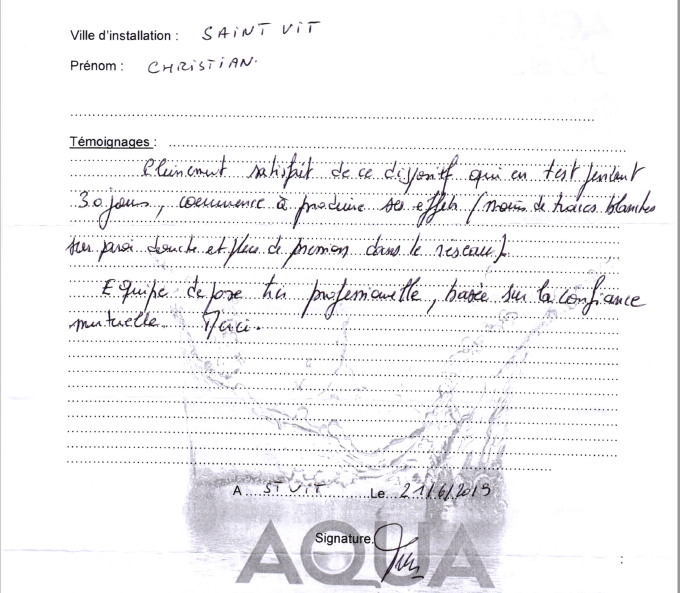 Ville d'installation : SAINT VIT
Prénom : CHRISTIAN.
Témoignages :
Pleinement satisfait de ce dispositif qui en test pendant
30 jours, commence à produire ses effets (moins de traces blanches
sur paroi douche et plus de pression dans le reseau).
Equipe de pose très professionnelle, basée sur la confiance
mutuelle. Merci.
A ST VIT Le 21/6/2019
Signature.
AQUA